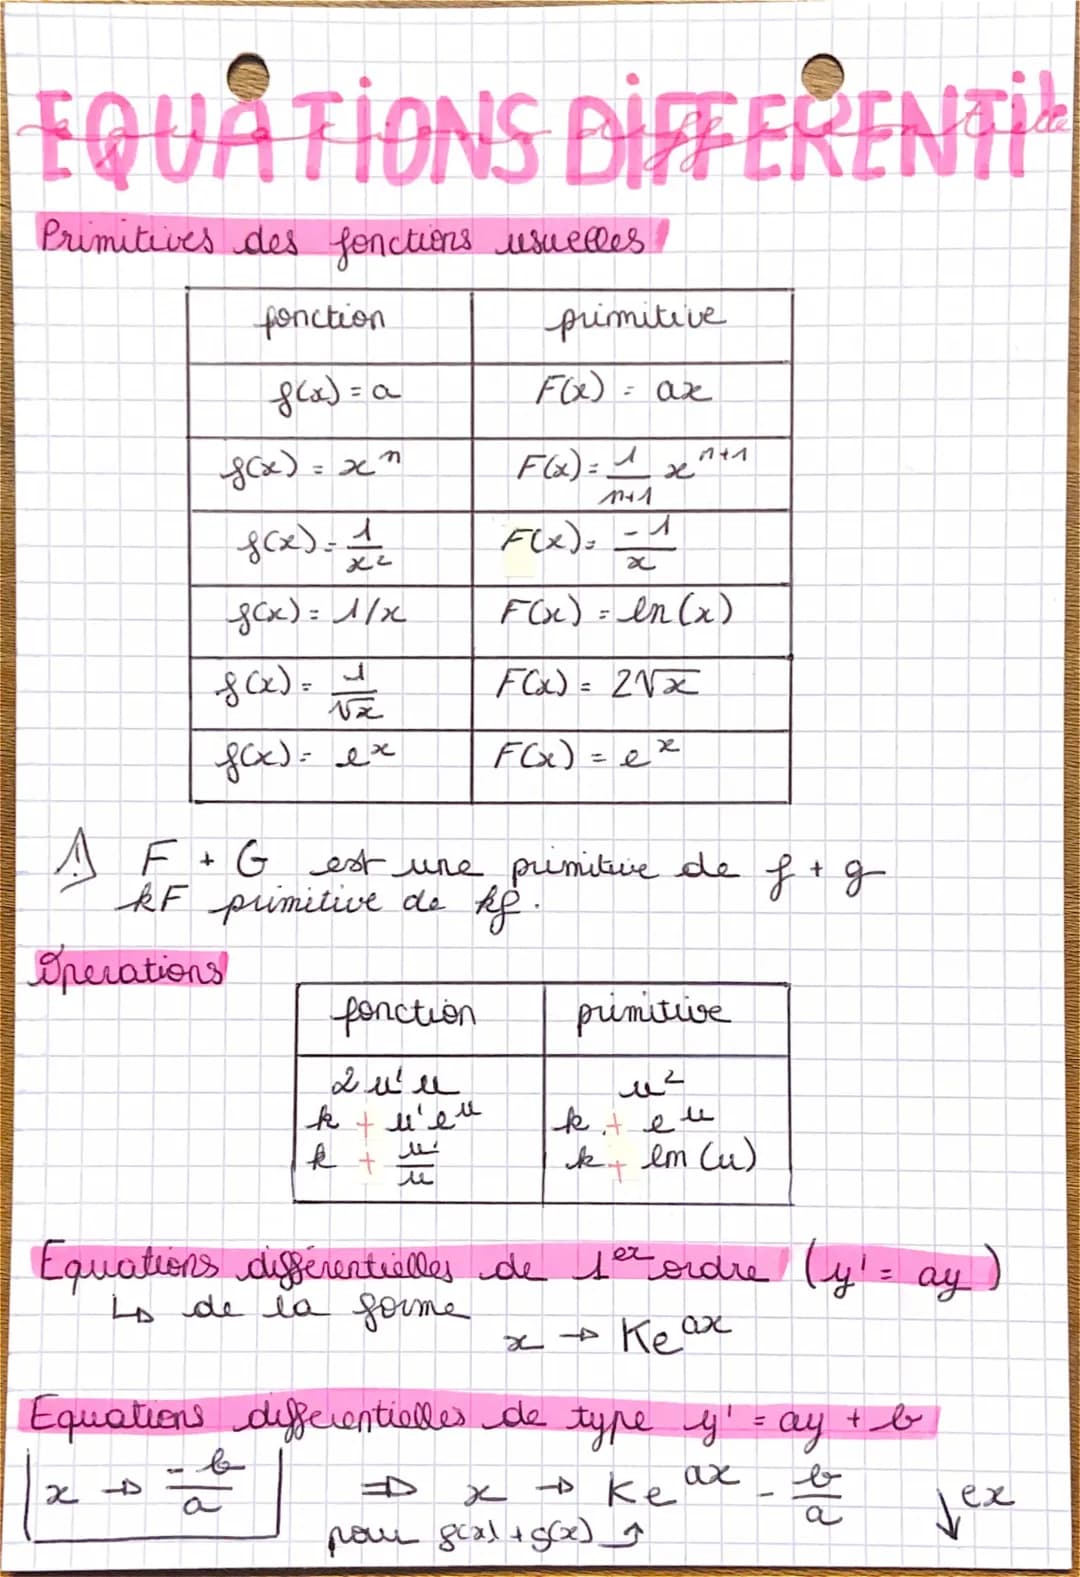 EQUATIONS DIFFERENTI
équations différentielle
Primitives des fonctions usuelles
fonction primitive
f(x) = a F(x) = ax
f(x) = xⁿ F(x) = 1/n+1 xⁿ⁺¹
f(x) = 1/x² F(x) = -1/x
f(x) = 1/x F(x) = ln(x)
f(x) = 1/√x F(x) = 2√x
f(x) = eˣ F(x) = eˣ
⚠ F + G est une primitive de f + g
kF primitive de kf.
Opérations
fonction primitive
2u'u u²
k + u'eᵘ k + eᵘ
k + u'/u k + ln(u)
Equations différentielles de 1er ordre (y' = ay)
↳ de la forme
x → Ke^ax
Equations differentielles de type y' = ay + b
x → -b/a ⇒ x → Ke^ax - b/a ↓ex
pour f(x) + g(x) ↑